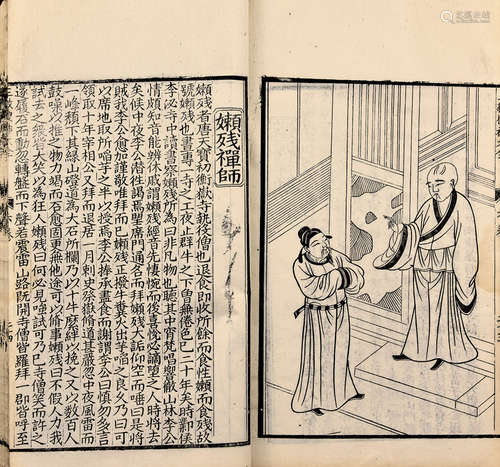 嬾残禪師
嬾残者唐天寶初衡嶽寺執役僧也退食即收所餘而食性嬾而食残故
號嬾残也晝專一寺之工夜止群牛之下曽無倦色已二十年矣時鄴侯
李泌寺中讀書察嬾残所為曰非凡物也聽其中宵梵唱響徹山林李公
情頗知音能辨休戚謂嬾残經音先悽惋而後喜悅必謫墮之人時將去
矣候中夜李公潜往謁焉望席門通名而拜嬾残大詬仰空而唾曰是將
賊我李公愈加謹敬唯拜而已嬾残正撥牛糞火出芋啗之良久乃曰可
以席地取所啗芋之半以授焉李公捧承盡食而謝謂李公曰慎勿多言
領取十年宰相公又拜而退居一月刺史祭嶽修道甚嚴忽中夜風雷而
一峰頹下其緣山磴道為大石所欄乃以十牛縻絆以挽之又以數百人
鼓噪以推之物力竭而石愈固更無他途可以脩事嬾残曰不假人力我
試去之衆皆大笑以為狂人嬾残曰何必見嗤試可乃已寺僧笑而許之
遂履石而動忽轉盤而下聲若震雷山路既開寺僧皆羅拜一郡皆呼至